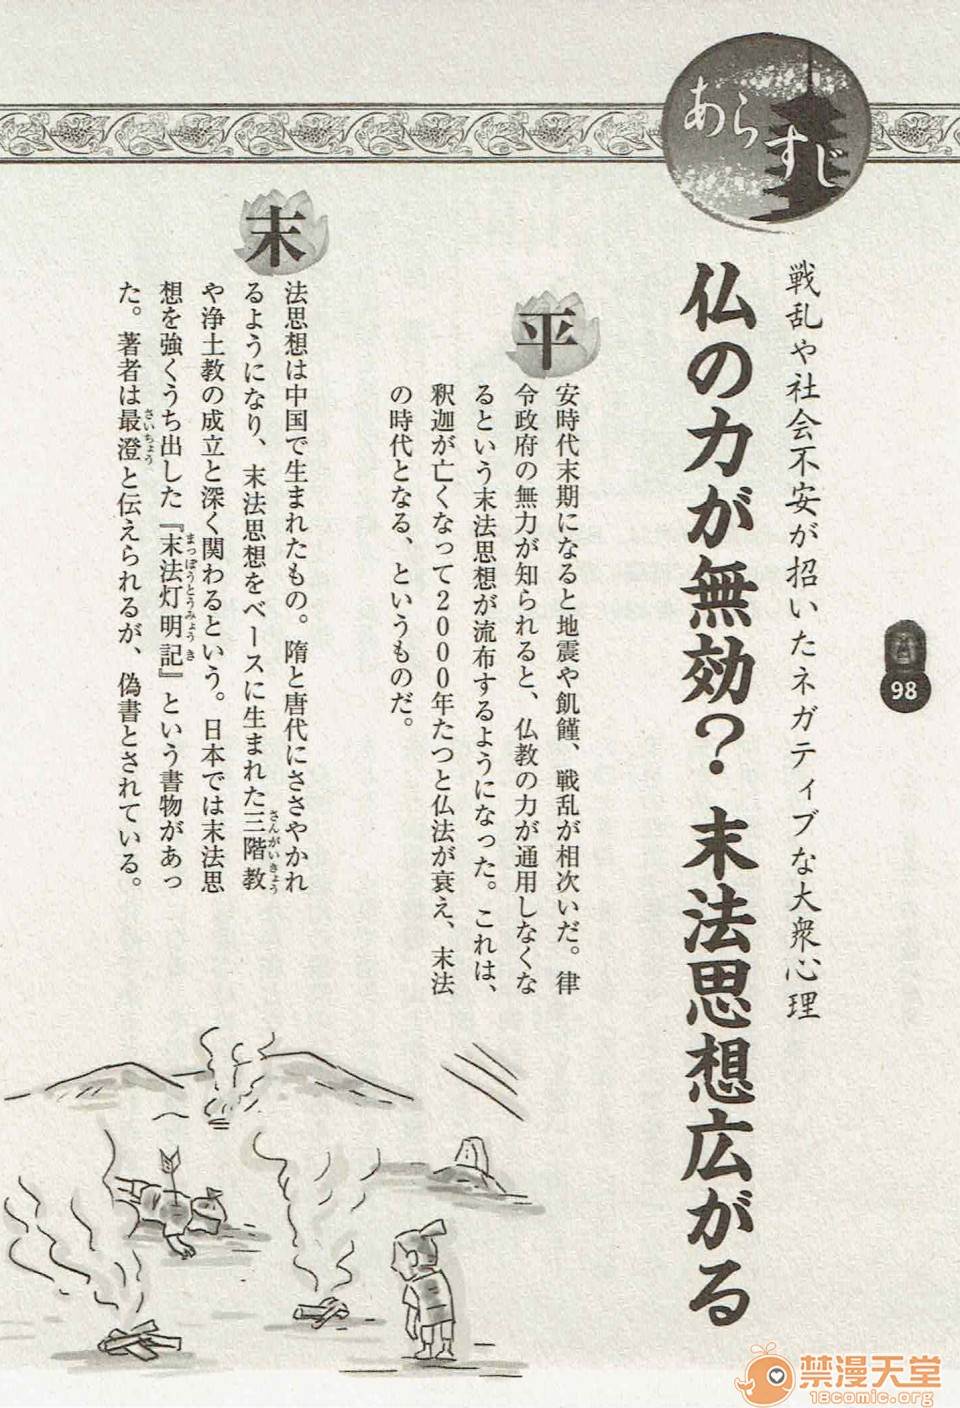 あらすじ
戦乱や社会不安が招いたネガティブな大衆心理
仏の力が無効？ 末法思想広がる
98
平
安時代末期になると地震や飢饉、戦乱が相次いだ。律
令政府の無力が知られると、仏教の力が通用しなくな
るという末法思想が流布するようになった。これは、
釈迦が亡くなって2000年たつと仏法が衰え、末法
の時代となる、というものだ。
末
法思想は中国で生まれたもの。隋と唐代にささやかれ
るようになり、末法思想をベースに生まれた三階教
さんがいきょう
や浄土教の成立と深く関わるという。日本では末法思
想を強くうち出した『末法灯明記』という書物があっ
まっぽうとうみょうき
た。著者は最澄と伝えられるが、偽書とされている。
さいちょう
禁漫天堂
18comic.org